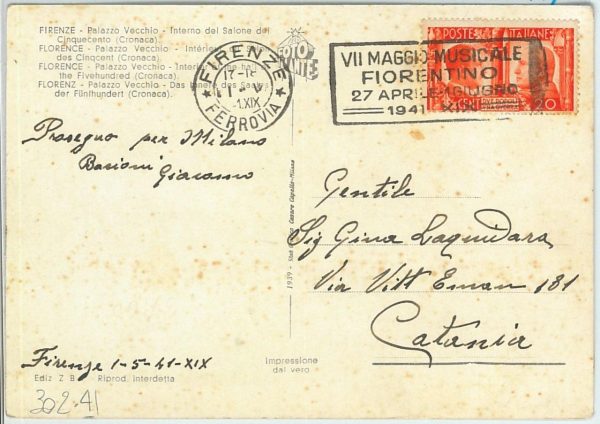 FIRENZE - Palazzo Vecchio - Interno del Salone dei
Cinquecento (Cronaca).
FLORENCE - Palazzo Vecchio - Intérieur
des Cinqcent (Cronaca).
FLORENCE - Palazzo Vecchio - Interior the hall
the Fivehundred (Cronaca).
FLORENZ - Palazzo Vecchio - Das Innere des
der Fünfhundert (Cronaca).
FOTO
FIRENZE
17-18
1·V
1.XIX
FERROVIA
POSTE ITALIANE
VII MAGGIO MUSICALE
FIORENTINO
27 APRILE-1GIUGNO
1941-XIX
20
Proseguo per Milano
Giacomo
Gentile
Sig Gina Laquidara
Via Vitt Eman 181
Catania
1939 - Cesare Capello-Milano
Firenze 1-5-41-XIX
Ediz Z B Riprod interdetta
Impressione
dal vero
302.41